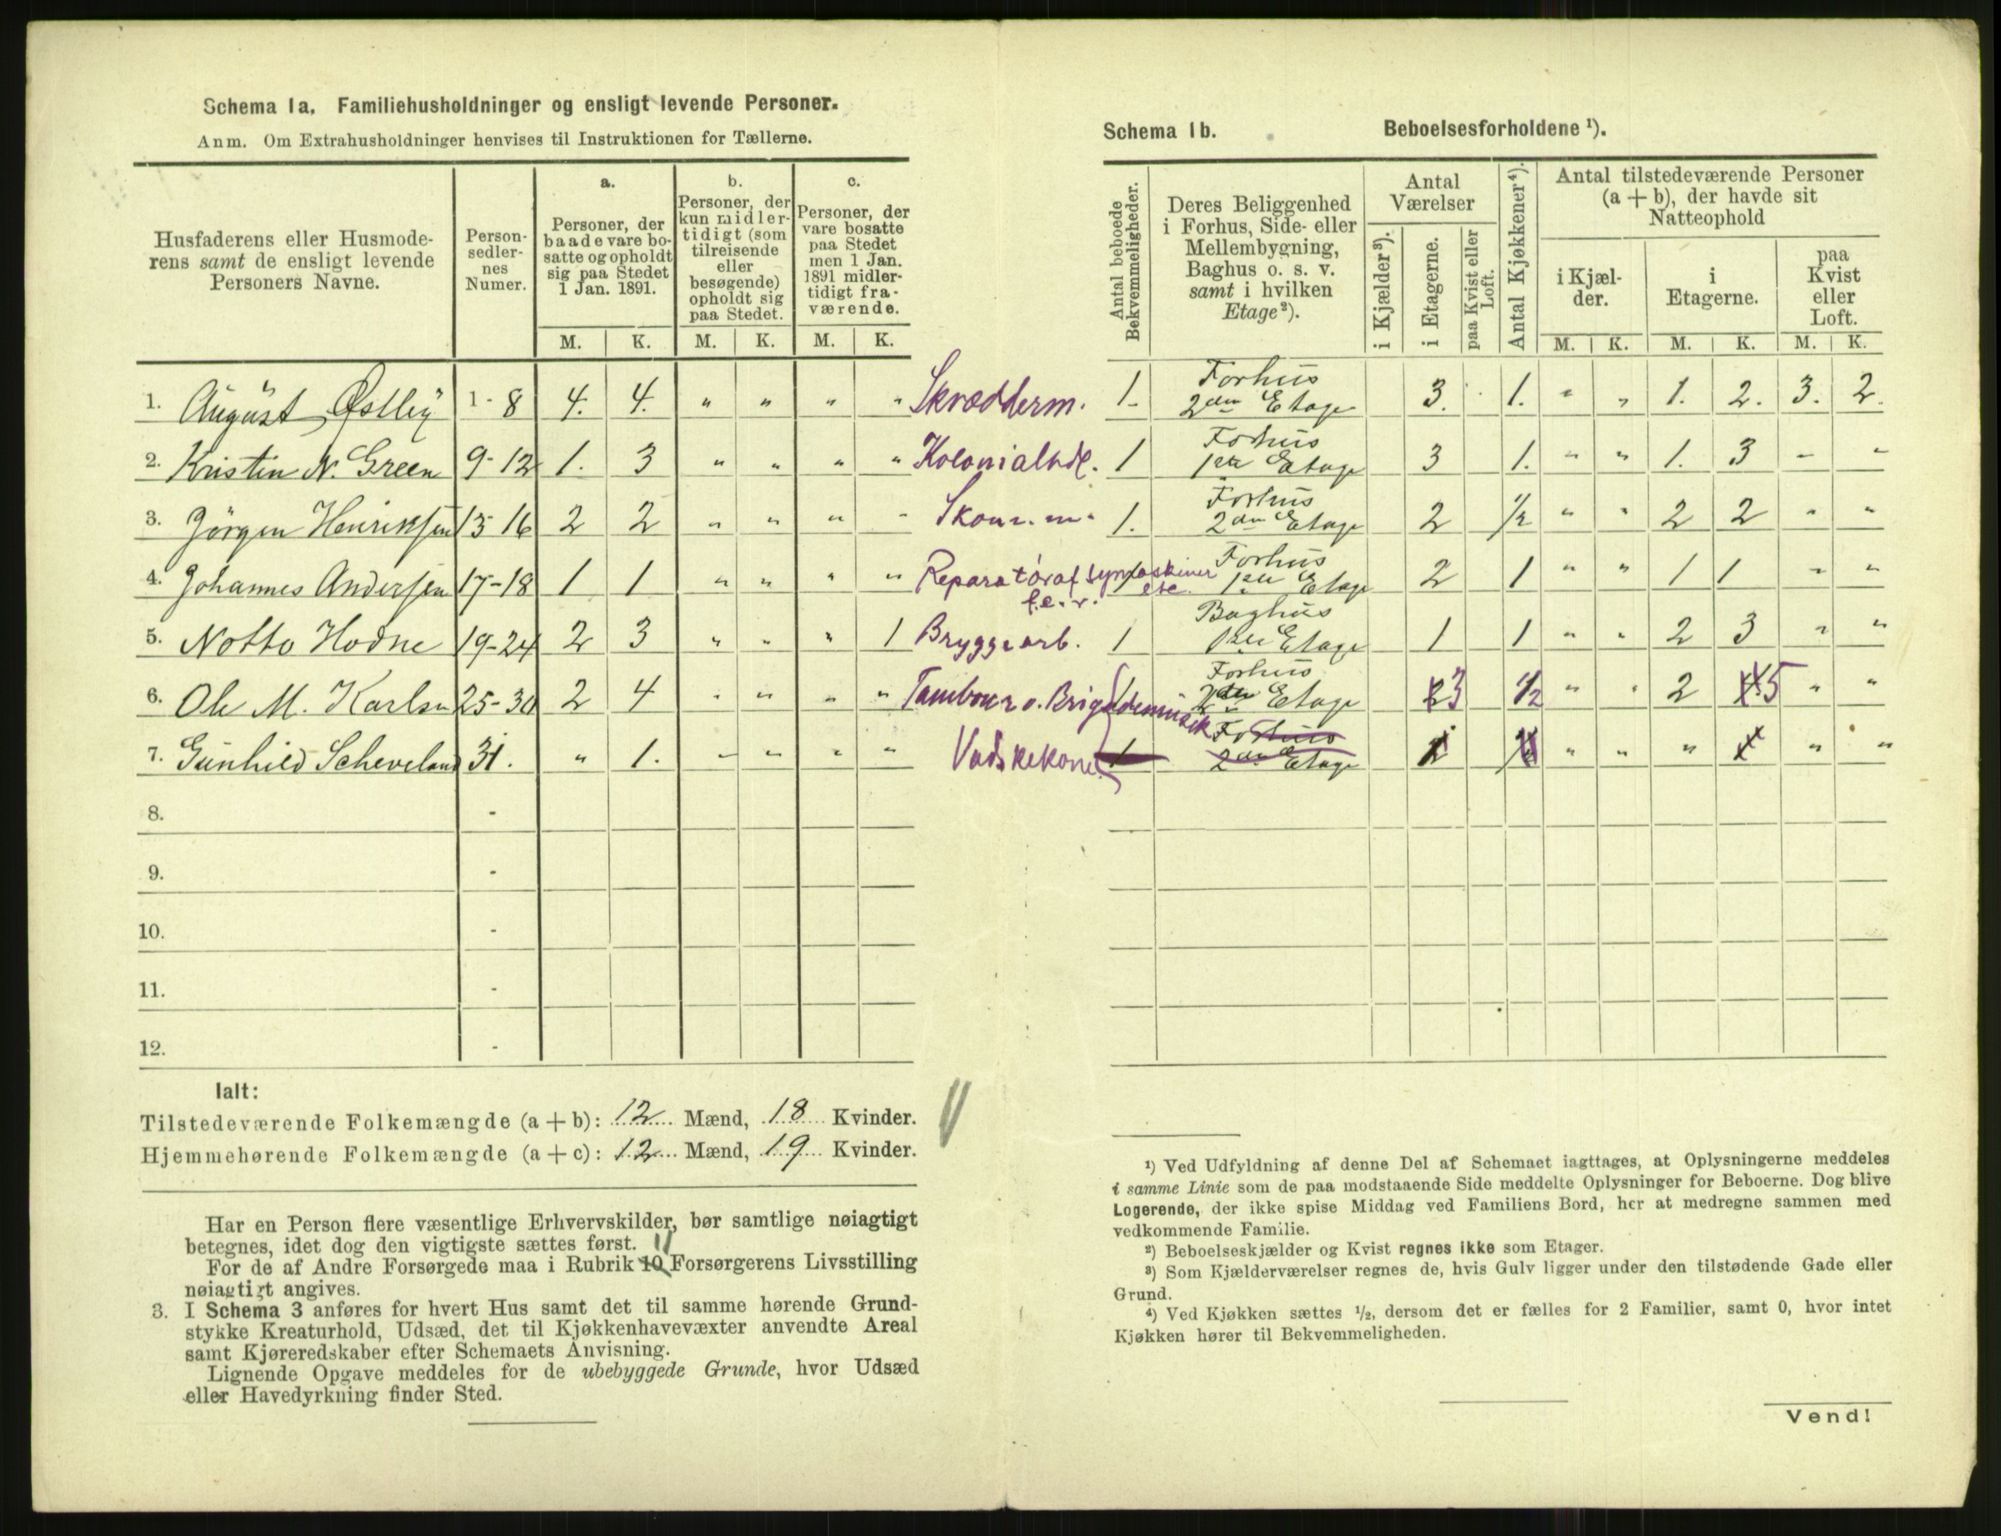 Schema 1a. Familiehusholdninger og ensligt levende Personer.
Anm. Om Extrahusholdninger henvises til Instruktionen for Tællerne.
Husfaderens eller Husmoderens samt de ensligt levende Personers Navne.
Personsedlernes Numer.
a. Personer, der baade vare bosatte og opholdt sig paa Stedet 1 Jan. 1891.
b. Personer, der kun midlertidigt (som tilreisende eller besøgende) opholdt sig paa Stedet.
c. Personer, der vare bosatte paa Stedet men 1 Jan. 1891 midlertidigt fraværende.
M. K. M. K. M. K.
1. August Østlij 1-8 4. 4. " " " " Skrædderm.
2. Kristin N. Green 9-12 1. 3 " " " " Kolonialhdl.
3. Jörgen Henriksen 13-16 2 2 " " " " Skom. m.
4. Johannes Andersen 17-18 1 1 " " " " Reparatör af Symaskiner etc. f.e.r.
5. Notto Hodne 19-24 2 3 " " " 1 Bryggearb.
6. Ole M. Karlsen 25-30 2 4 " " " " Tambour v. Brigademusik
7. Gunhild Scheveland 31. " 1. " " " " Vadskekone
8. -
9. -
10. -
11. -
12. -
Ialt:
Tilstedeværende Folkemængde (a + b): 12 Mænd, 18 Kvinder.
Hjemmehørende Folkemængde (a + c): 12 Mænd, 19 Kvinder.
Har en Person flere væsentlige Erhvervskilder, bør samtlige nøiagtigt
betegnes, idet dog den vigtigste sættes først.
11
For de af Andre Forsørgede maa i Rubrik 10 Forsørgerens Livsstilling
nøiagtigt angives.
3. I Schema 3 anføres for hvert Hus samt det til samme hørende Grund-
stykke Kreaturhold, Udsæd, det til Kjøkkenhavevæxter anvendte Areal
samt Kjøreredskaber efter Schemaets Anvisning.
Lignende Opgave meddeles for de ubebyggede Grunde, hvor Udsæd
eller Havedyrkning finder Sted.
Schema 1b. Beboelsesforholdene ¹).
Antal beboede Bekvemmeligheder.
Deres Beliggenhed i Forhus, Side- eller Mellembygning, Baghus o. s. v. samt i hvilken Etage²).
Antal Værelser
i Kjælder³).
i Etagerne.
paa Kvist eller Loft.
Antal Kjøkkener⁴).
Antal tilstedeværende Personer (a + b), der havde sit Natteophold
i Kjælder.
i Etagerne.
paa Kvist eller Loft.
M. K. M. K. M. K.
1. Forhus 2den Etage 3. 1. " " 1. 2. 3. 2.
1 Forhus 1ste Etage 3 1. " " 1. 3 " "
1. Forhus 2den Etage 2 1/2 " " 2 2 " "
1 Forhus 1ste Etage 2 1 " " 1 1 " "
1 Baghus 1ste Etage 1 1 " " 2 3 " "
1 Forhus 2den Etage 3 1/2 " " 2 5 " "
1 Forhus 2den Etage " " " " "
¹) Ved Udfyldning af denne Del af Schemaet iagttages, at Oplysningerne meddeles
i samme Linie som de paa modstaaende Side meddelte Oplysninger for Beboerne. Dog blive
Logerende, der ikke spise Middag ved Familiens Bord, her at medregne sammen med
vedkommende Familie.
²) Beboelseskjælder og Kvist regnes ikke som Etager.
³) Som Kjælderværelser regnes de, hvis Gulv ligger under den tilstødende Gade eller
Grund.
⁴) Ved Kjøkken sættes ½, dersom det er fælles for 2 Familier, samt 0, hvor intet
Kjøkken hører til Bekvemmeligheden.
Vend!